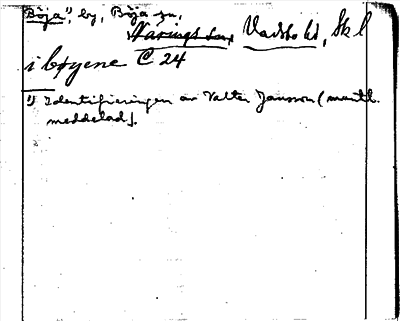 Böja¹⁾ by, Böja sn,
Vadsbo hd, Sk l
i bøyene C 24
¹⁾ Identifieringen av Valter Jansson (muntl.
meddelad).